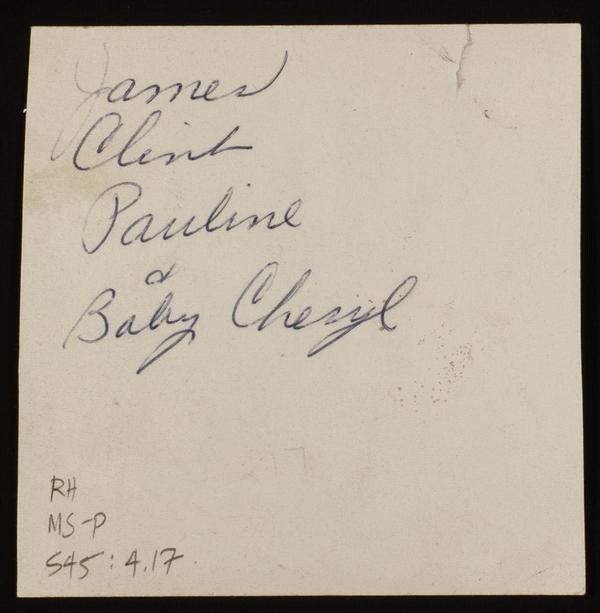 James
Clint
Pauline
&
Baby Cheryl
RH
MS-P
545:4.17